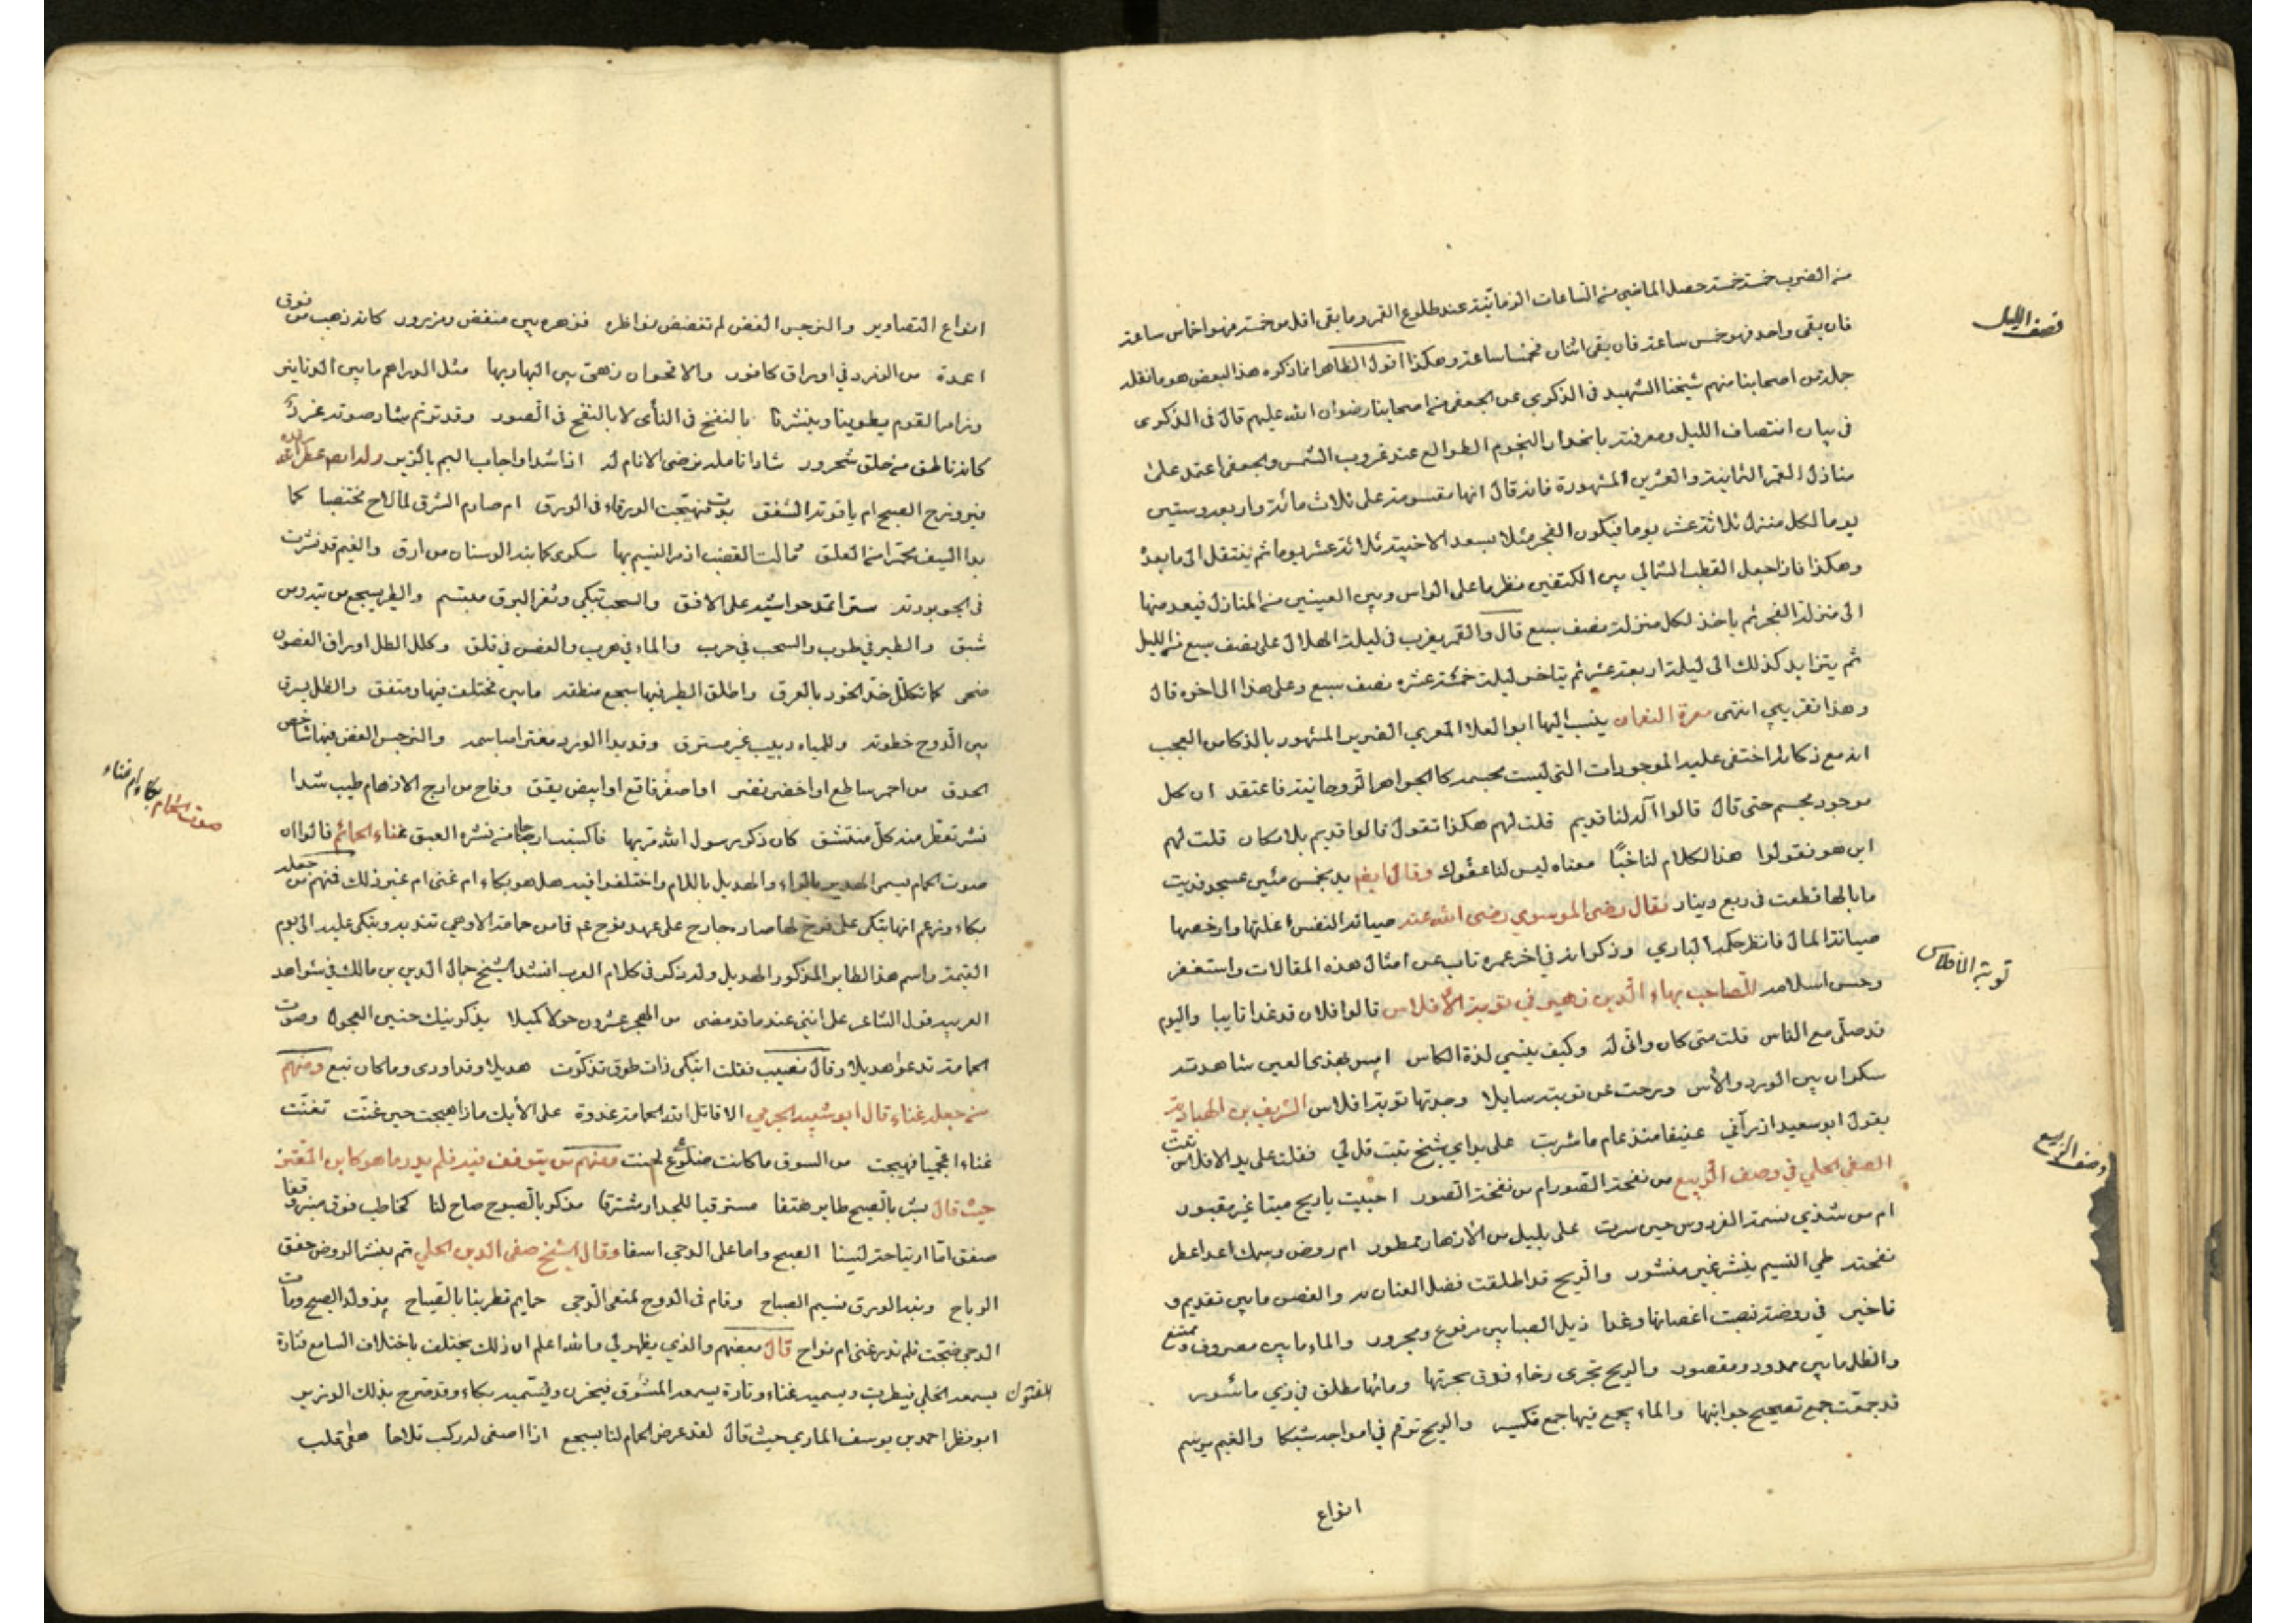 من الضرب خمسة خمسة حصل الماضي من الساعات الزمانية عند طلوع القمر وما بقى اقل من خمسة فهو اخماس ساعة
نصف الليل
فان بقى واحد فهو خمس ساعة فان بقى اثنان فخمسا ساعة وهكذا اقول الظاهر ان ما ذكره هذا البعض هو ما نقله
جملة من اصحابنا منهم شيخنا الشهيد في الذكرى عن الجعفي من اصحابنا رضوان الله عليهم قال في الذكرى
في بيان انتصاف الليل ومعرفته بانحدار النجوم الطوالع عند غروب الشمس والجعفي اعتمد على
منازل القمر الثمانية والعشرين المشهورة فانه قال انها مقسومة على ثلاث مائة واربعة وستين
يوما لكل منزل ثلاثة عشر يوما فيكون الفجر مثلا بسعد الاخبية ثلاثة عشر يوما ثم ينتقل الى ما بعده
وهكذا فاذا جعل القطب الشمالي بين الكتفين نظر ما على الراس وبين العينين من المنازل فيعد منها
الى منزلة الفجر ثم ياخذ لكل منزلة نصف سبع قال والقمر يغرب في ليلة الهلال على نصف سبع من الليل
ثم يتزايد كذلك الى ليلة اربعة عشر ثم يتاخر ليلة خمسة عشره نصف سبع وعلى هذا الى اخره قال
وهذا تقريبي انتهى معرة النعمان ينسب اليها ابو العلا المعري الضرير المشهور بالذكا من العجب
انه مع ذكائه اختفى عليه الموجودات التي ليست بجسمه كالجواهر الروحانية فاعتقد ان كل
موجود مجسم حتى قال قالوا آله لنا قديم قلت لهم هكذا نقول قالوا قديم بلا مكان قلت لهم
اين هو فقولوا هذا الكلام لنا خبيًا معناه ليس لنا عقول وقال ايضا يد بخمس مئين عسجد فديت
ما بالها قطعت في ربع دينار فقال رضي الموسوي رضي الله عنه صيانة النفس اغلتها وارخصها
صيانة المال فانظر حكمة الباري وذكر انه في اخر عمره تاب عن امثال هذه المقالات واستغفر
توبة الافلاس
وحسن اسلامه للصاحب بهاء الدين زهير في توبة الأفلاس قالوا فلان قد غدا تايبا واليوم
قد صلى مع الناس قلت متى كان وانى له وكيف ينسى لذة الكاس امس بهذي العين شاهدته
سكران بين الورد والآس ورحت عن توبته سايلا وجدتها توبة افلاس الشريف بن الهبارية
يقول ابو سعيد اذ رآني عفيفا منذ عام ما شربت على يد اي شيخ تبت قل لي فقلت على يد الافلاس تبت
وصف الربيع
الصفي الحلي في وصف الربيع من نفحة الصور ام من نفخة الصور احييت يا ريح ميتا غير مقبور
ام من شذي نسمة الفردوس حين سرت على بليل من الأزهار ممطور ام روض رسمك اعدا عطر
نفحته طي النسيم بنشر غير منشور والريح قد اطلقت فضل العنان به والغصن ما بين تقديم و
تاخير في روضة نصبت اغصانها وغدا ذيل الصبا بين مرفوع ومجرور والماء ما بين مصروف وممتنع
والظل ما بين ممدود ومقصور والريح تجري رخاء فوق بحرتها وماؤها مطلق في زي ماسور
قد جمعت جمع تصحيح جوانبها والماء يجمع فيها جمع تكسير والريح ترقم في امواجه شبكا والغيم يرسم
انواع
انواع التصاوير والنرجس الغض لم تغضض نواظره فزهره بين منغض ومزرور كانه ذهب من فوق
اعمدة من الزمرد في اوراق كافور والاقحوان زهى بين البهار بها مثل الدراهم ما بين الدنانير
وزامر القوم يطوينا وينشرنا بالنفخ في الناي لا بالنفخ في الصور وقد ترنم شاد صوته غرد
كانه ناطق من حلق شحرور شاد انامله ترضي الانام له اذا شدا واجاب البم بالزير وله ايضا عطر الله
فيروزج الصبح ام ياقوتة الشفق بدت فهيجت الورقاء في الورق ام صارم الشرق لما لاح مختضبا كما
بدا السيف محمرا من العلق ومالت القضب اذ مر النسيم بها سكرى كما نبه الوسنان من ارق والغيم قد نشرت
في الجو بردته سترا تمد حواشيه على الافق والسحب تبكي وثغر البرق مبتسم والطير يسجع من تيه ومن
شبق والطير في طرب والسحب في حرب والماء في هرب والغصن في قلق وكلل الطل اوراق الغصون
ضحى كما تكلل خد الخود بالعرق واطلق الطير فيها سجع منطقه ما بين مختلف فيها ومتفق والظل يسرق
بين الدوح خطوته وللمياه دبيب غير مسترق وقد بدا الورد مفترا مباسمه والنرجس الغض فيها شاخص
الحدق من احمر ساطع او اخضر نضر او اصفر فاقع او ابيض يقق وفاح من ارج الازهار طيب شذا
صوت الحمام بكاء ام غناء
نشر تعطر منه كل منتشق كان ذكر رسول الله مر بها فاكتسبت ارجا من نشره العبق غناء الحمائم قالوا ان
صوت الحمام يسمى الهدير بالراء والهديل باللام واختلفوا فيه هل هو بكاء ام غنى ام غير ذلك فمنهم من جعله
بكاء وزعم انها تبكي على فرخ لها صاده جارح على عهد نوح عم فما من حمامة الا وهي تندبه وتبكي عليه الى يوم
القيمة واسم هذا الطاير المذكور الهديل وله ذكر في كلام العرب انشد الشيخ جمال الدين بن مالك في شواهد
العربية قول الشاعر على انني عندما قد مضى من الهجر عشرون حولا كميلا يذكرنيك حنين العجول وصوت
الحمامة تدعو هديلا وقال نصيب فقلت اتبكي ذات طوق تذكرت هديلا وقد اودى وما كان تبع ومنهم
من جعله غناء قال ابو سعيد الجرمي الا قاتل الله الحمامة غدوة على الأيك ماذا هيجت حين غنت تغنت
غناء اعجميا فهيجت من الشوق ما كانت ضلوعي اجنت ومنهم من يتوقف فيه فلم يدر ما هو كابن المعتز
حيث قال بشر بالصبح طاير هتفا مسترقيا للجدار مشترفا مذكر بالصبوح صاح لنا كخاطب فوق منبر وقفا
صفق اما ارتياحة لسنا الصبح واما على الدجى اسفا وقال الشيخ صفي الدين الحلي تم بنشر الروض خفق
الرياح ونبه الورق نسيم الصباح وقام في الدوح لمنعى الدجى حمايم تطربنا بالصياح مذ ولد الصبح ومات
الدجى ضجت فلم ندر غنى ام نواح قال بعضهم والذي يظهر لي والله اعلم ان ذلك يختلف باختلاف السامع فتارة
يسمعه الخلي فيطرب ويسميه غناء وتارة يسمعه المشوق فيحزن ويسميه بكاء وقد صرح بذلك الوزير
ابو نصر احمد بن يوسف المنازي حيث قال لقد عرض الحمام لنا بسجع اذا اصغى له ركب تلاحا شجى قلب